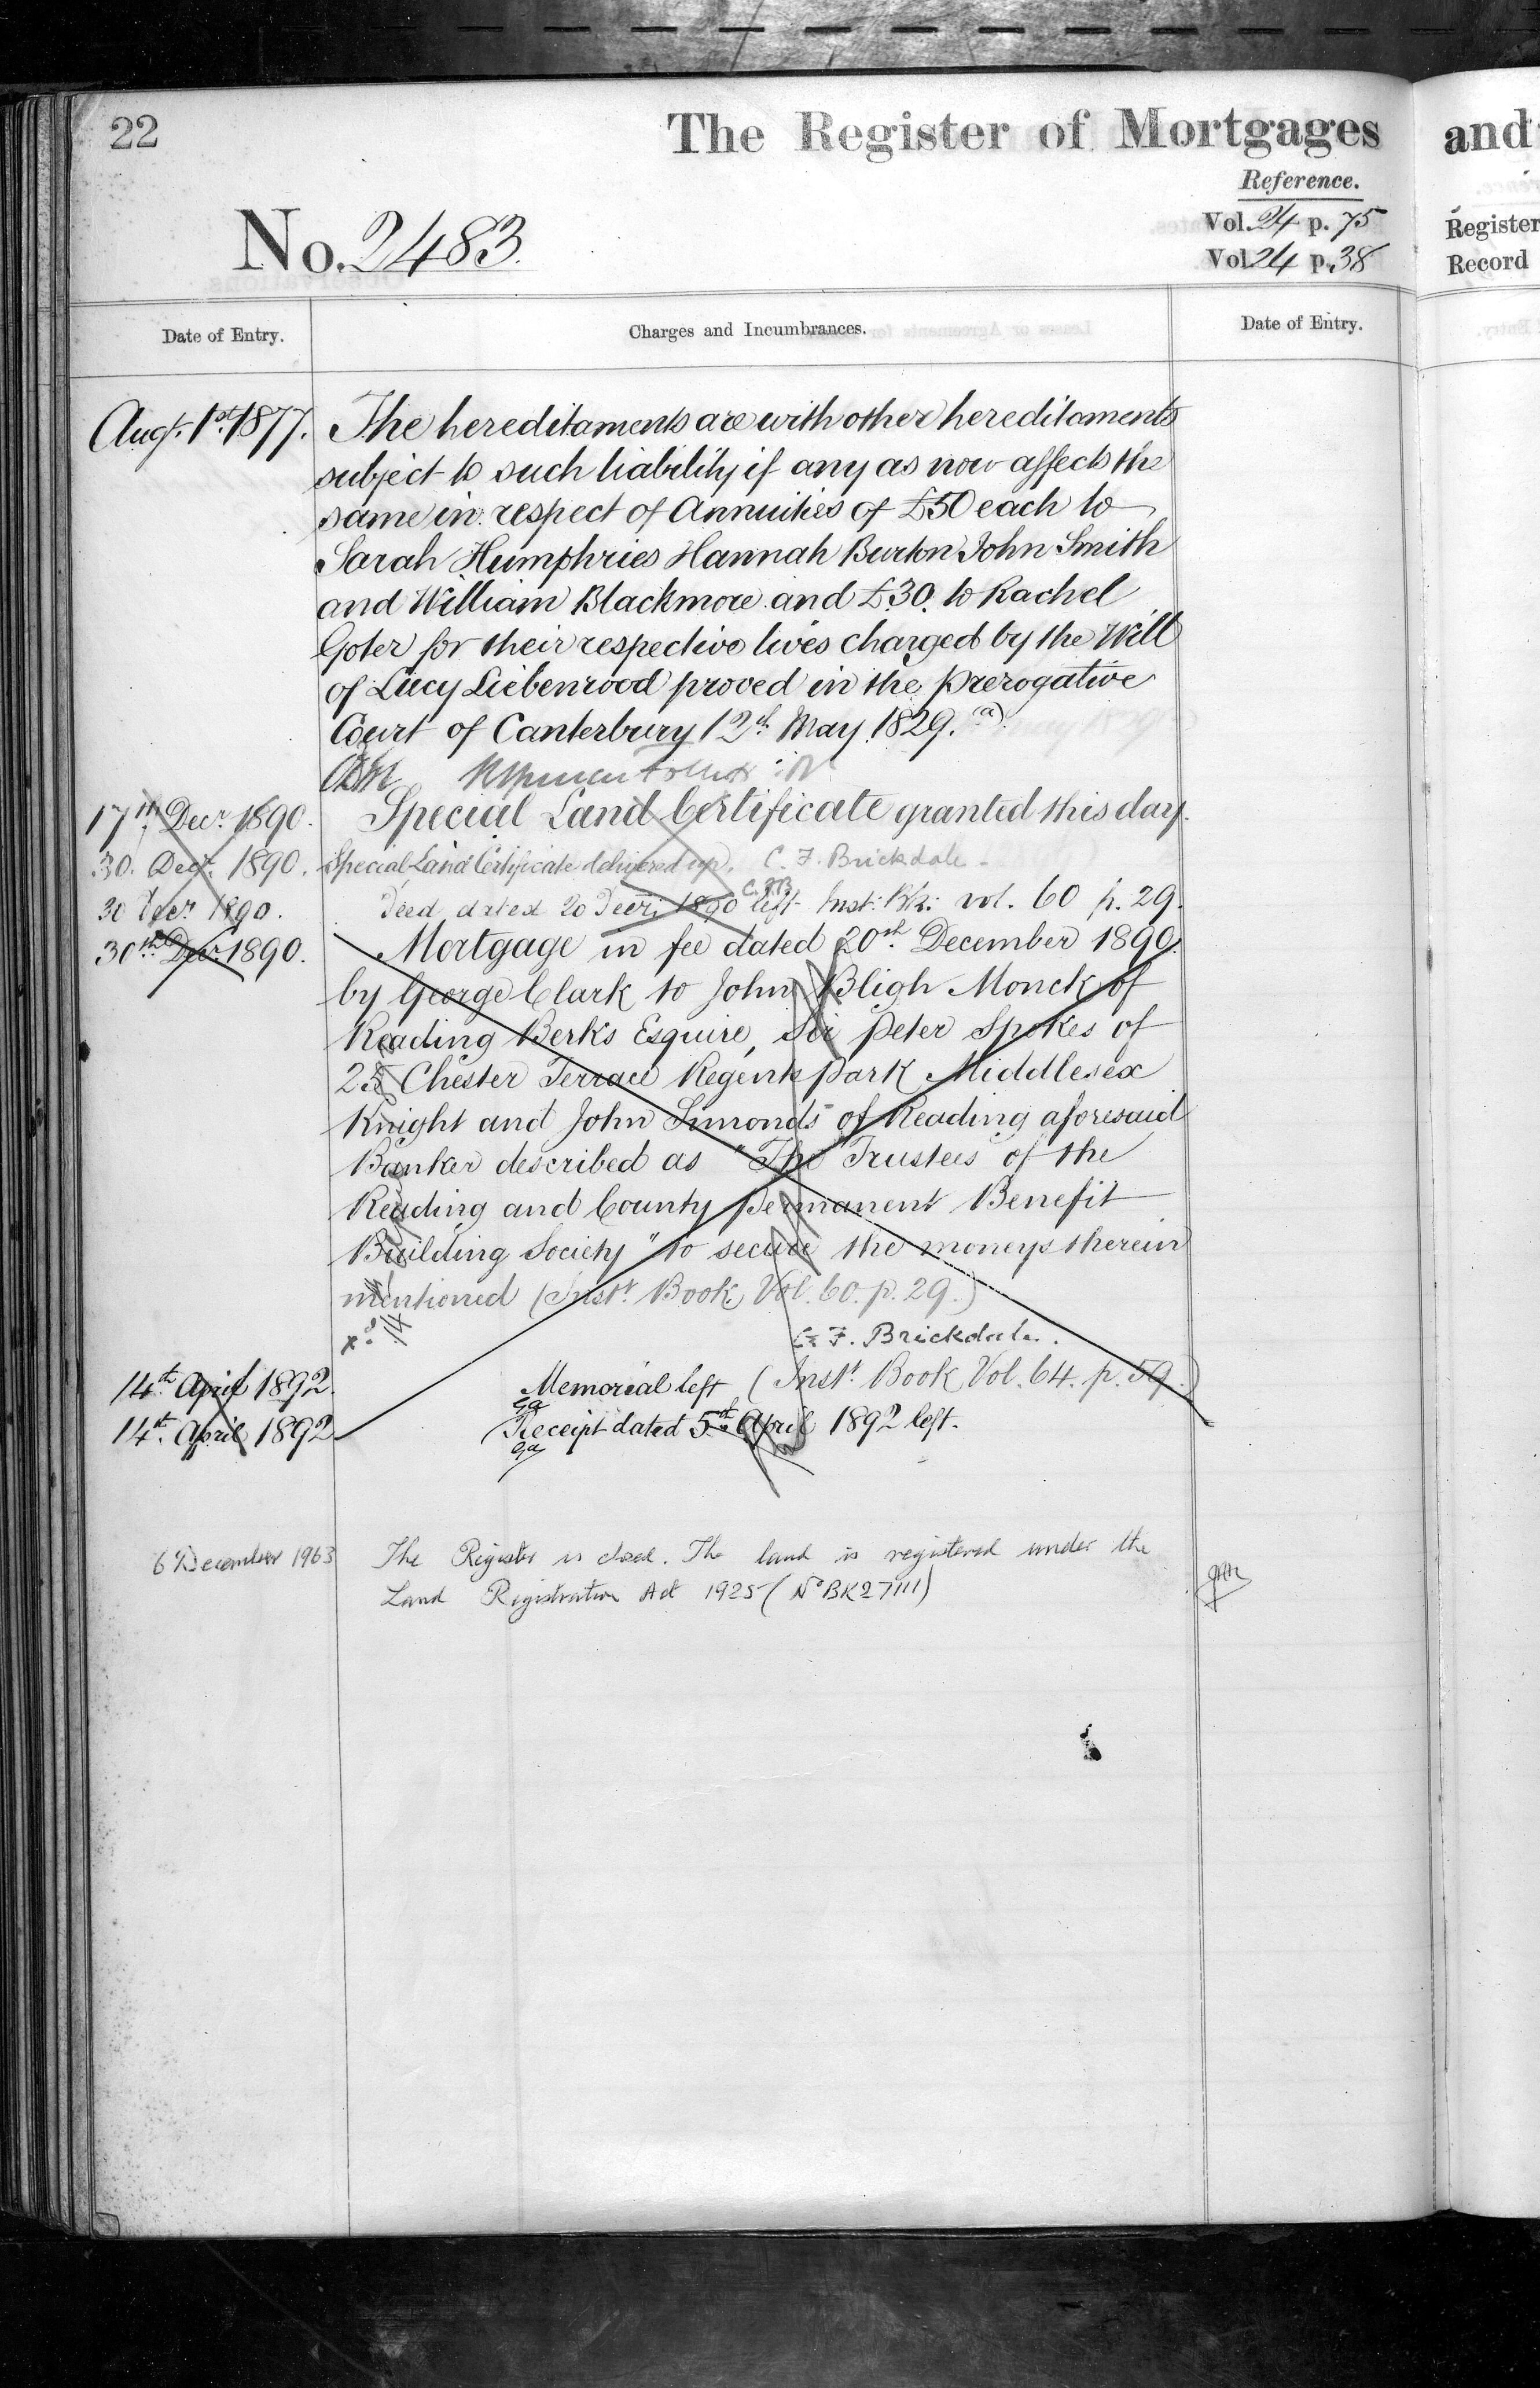 22
The Register of Mortgages
and
Reference.
No. 2483.
Vol. 24 p. 75
Vol. 24 p. 38
Register
Record
Date of Entry.
Charges and Incumbrances.
Date of Entry.
Augt. 1st. 1877. The hereditaments are with other hereditaments
subject to such liability if any as now affects the
same in respect of Annuities of £50 each to
Sarah Humphries Hannah Burton John Smith
and William Blackmore and £30. to Rachel
Goter for their respective lives charged by the Will
of Lucy Liebenrood proved in the Prerogative
Court of Canterbury 12th May 1829. (a)
17th Decr. 1890. Special Land Certificate granted this day.
30. Decr. 1890. Special Land Certificate delivered up. C. F. Brickdale.
C.F.B
30 Decr. 1890. Deed dated 20 Decr. 1890 left Inst: Bk: vol. 60 p. 29.
30th Decr. 1890. Mortgage in fee dated 20th December 1890.
by George Clark to John Bligh Monck of
Reading Berks Esquire, Sir Peter Spokes of
25 Chester Terrace Regents Park Middlesex
Knight and John Simonds of Reading aforesaid
Banker described as "The Trustees of the
Reading and County Permanent Benefit
Building Society" to secure the moneys therein
mentioned (Inst. Book Vol. 60. p. 29.)
C. F. Brickdale.
14th. April 1892. Memorial left (Inst. Book Vol. 64. p. 59.)
14th. April 1892 Receipt dated 5th April 1892 left.
6 December 1963 The Register is closed. The land is registered under the
Land Registration Act 1925 (No BK27111)